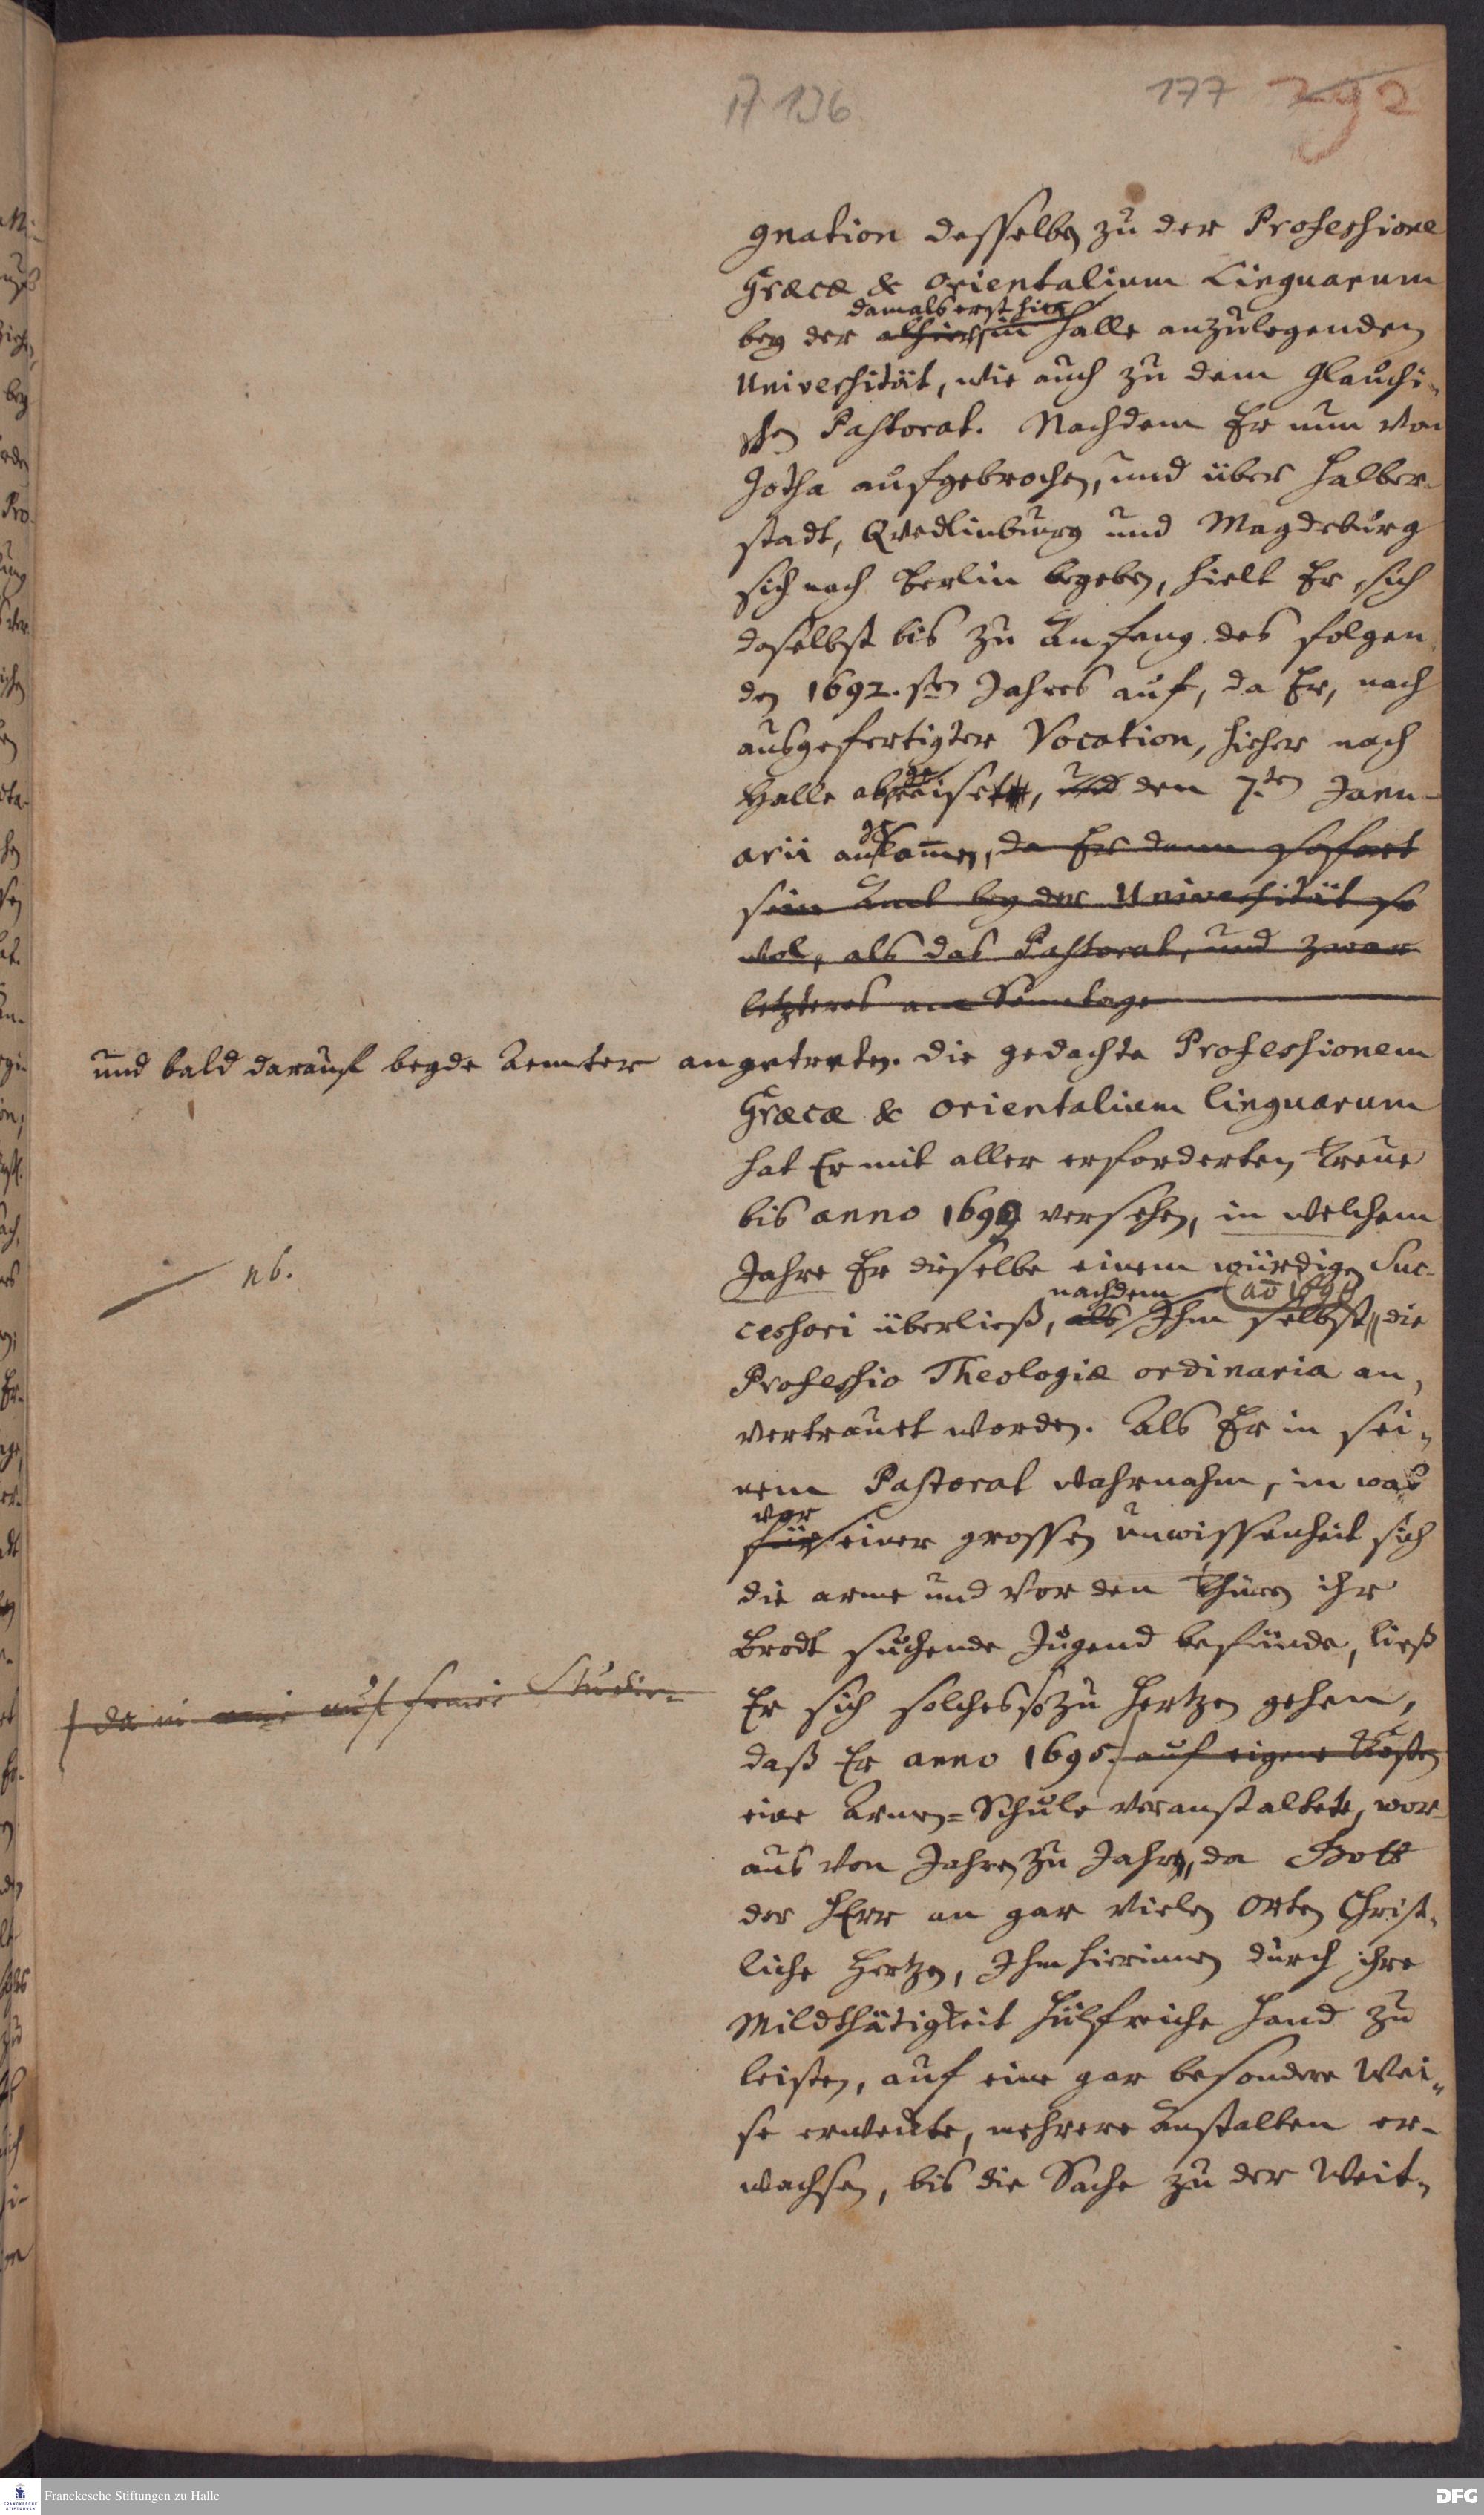 A 136.
177
292
gnation desselben zu der Professione
Græcæ & Orientalium Linguarum
damals erst hier
bey der alhier in Halle anzulegenden
Universität, wie auch zu dem Glauchi-
schen Pastorat. Nachdem Er nun von
Gotha aufgebrochen, und über Halber-
stadt, Qvedlinburg und Magdeburg
sich nach Berlin begeben, hielt Er sich
daselbst bis zu Anfang des folgen-
den 1692.sten Jahres auf, da Er, nach
ausgefertigter Vocation, hieher nach
Halle abgereiset, und den 7.ten Janu-
arii angekommen, da Er dann sofort
sein Amt bey der Universität so
wol, als das Pastorat, und zwar
letzteres am Sonntage
und bald darauf beyde Aemter angetreten. Die gedachte Professionem
Græcæ & Orientalium Linguarum
hat Er mit aller erforderten Treue
bis anno 1699 versehen, in welchem
nb.
Jahre Er dieselbe einem würdigen Suc-
nachdem
cessori überließ, als Ihm selbst die
Professio Theologiæ ordinaria an-
vertrauet worden. Als Er in sei-
nem Pastorat wahrnahm, in was
vor
für einer grossen Unwissenheit sich
die arme und vor den Thüren ihr
Brodt suchende Jugend befünde, ließ
da auf Studier-
Er sich solches so zu Hertzen gehen,
daß Er anno 1695. auf eigene Kosten
eine Armen-Schule veranstaltete, wor-
aus von Jahren zu Jahren, da Gott
der HErr an gar vielen Orten Christ-
liche Hertzen, Ihm hierinnen durch ihre
Mildthätigkeit hülfreiche Hand zu
leisten, auf eine gar besondere Wei-
se erweckte, mehrere Anstalten er-
wachsen, bis die Sache zu der Weit-
Franckesche Stiftungen zu Halle
DFG